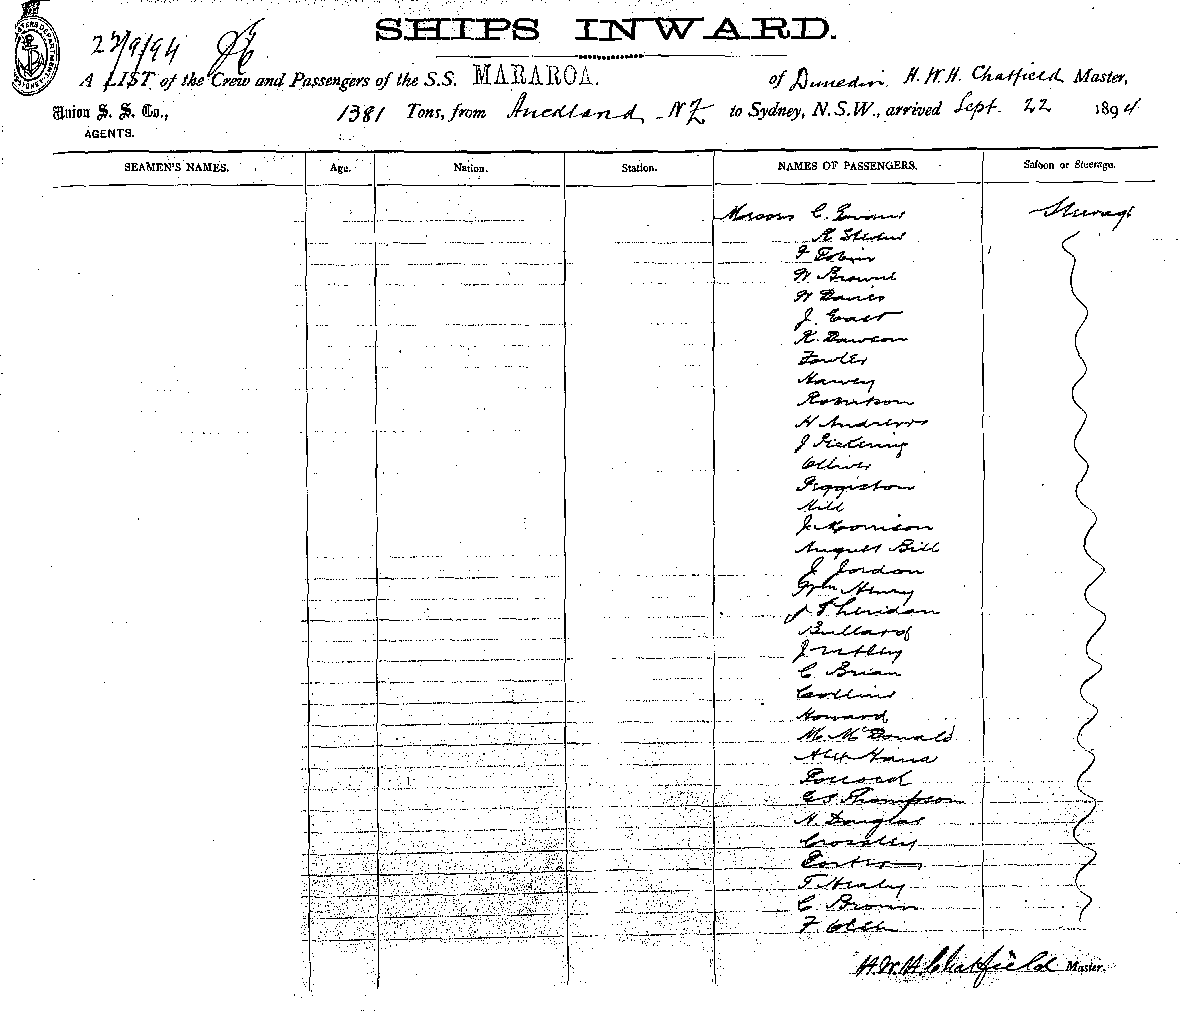 SHIPS INWARD.
22/9/94
A LIST of the Crew and Passengers of the S.S. MARAROA. of Dunedin H.W.H. Chatfield Master,
Union S. S. Co., 1381 Tons, from Auckland NZ to Sydney, N.S.W., arrived Sept. 22 1894
AGENTS.
SEAMEN'S NAMES. Age. Nation. Station. NAMES OF PASSENGERS. Saloon or Steerage.
Messrs C. Steerage
F Tobin
W Browne
W Davies
J. East
R. Dawson
Fowler
Harvey
Robertson
H Andrews
J Pickering
Olliver
Piggiston
Hill
J. Morrison
August Bill
J Jordon
Wm Henry
J Sheridan
Bullard
J Utley
C. Brian
Collins
Howard
M. McDonald
Alex
Pollock
Thompson
N. Douglas
Crossley
Porter
T. Healy
C. Brown
F.
H.W.H. Chatfield Master.